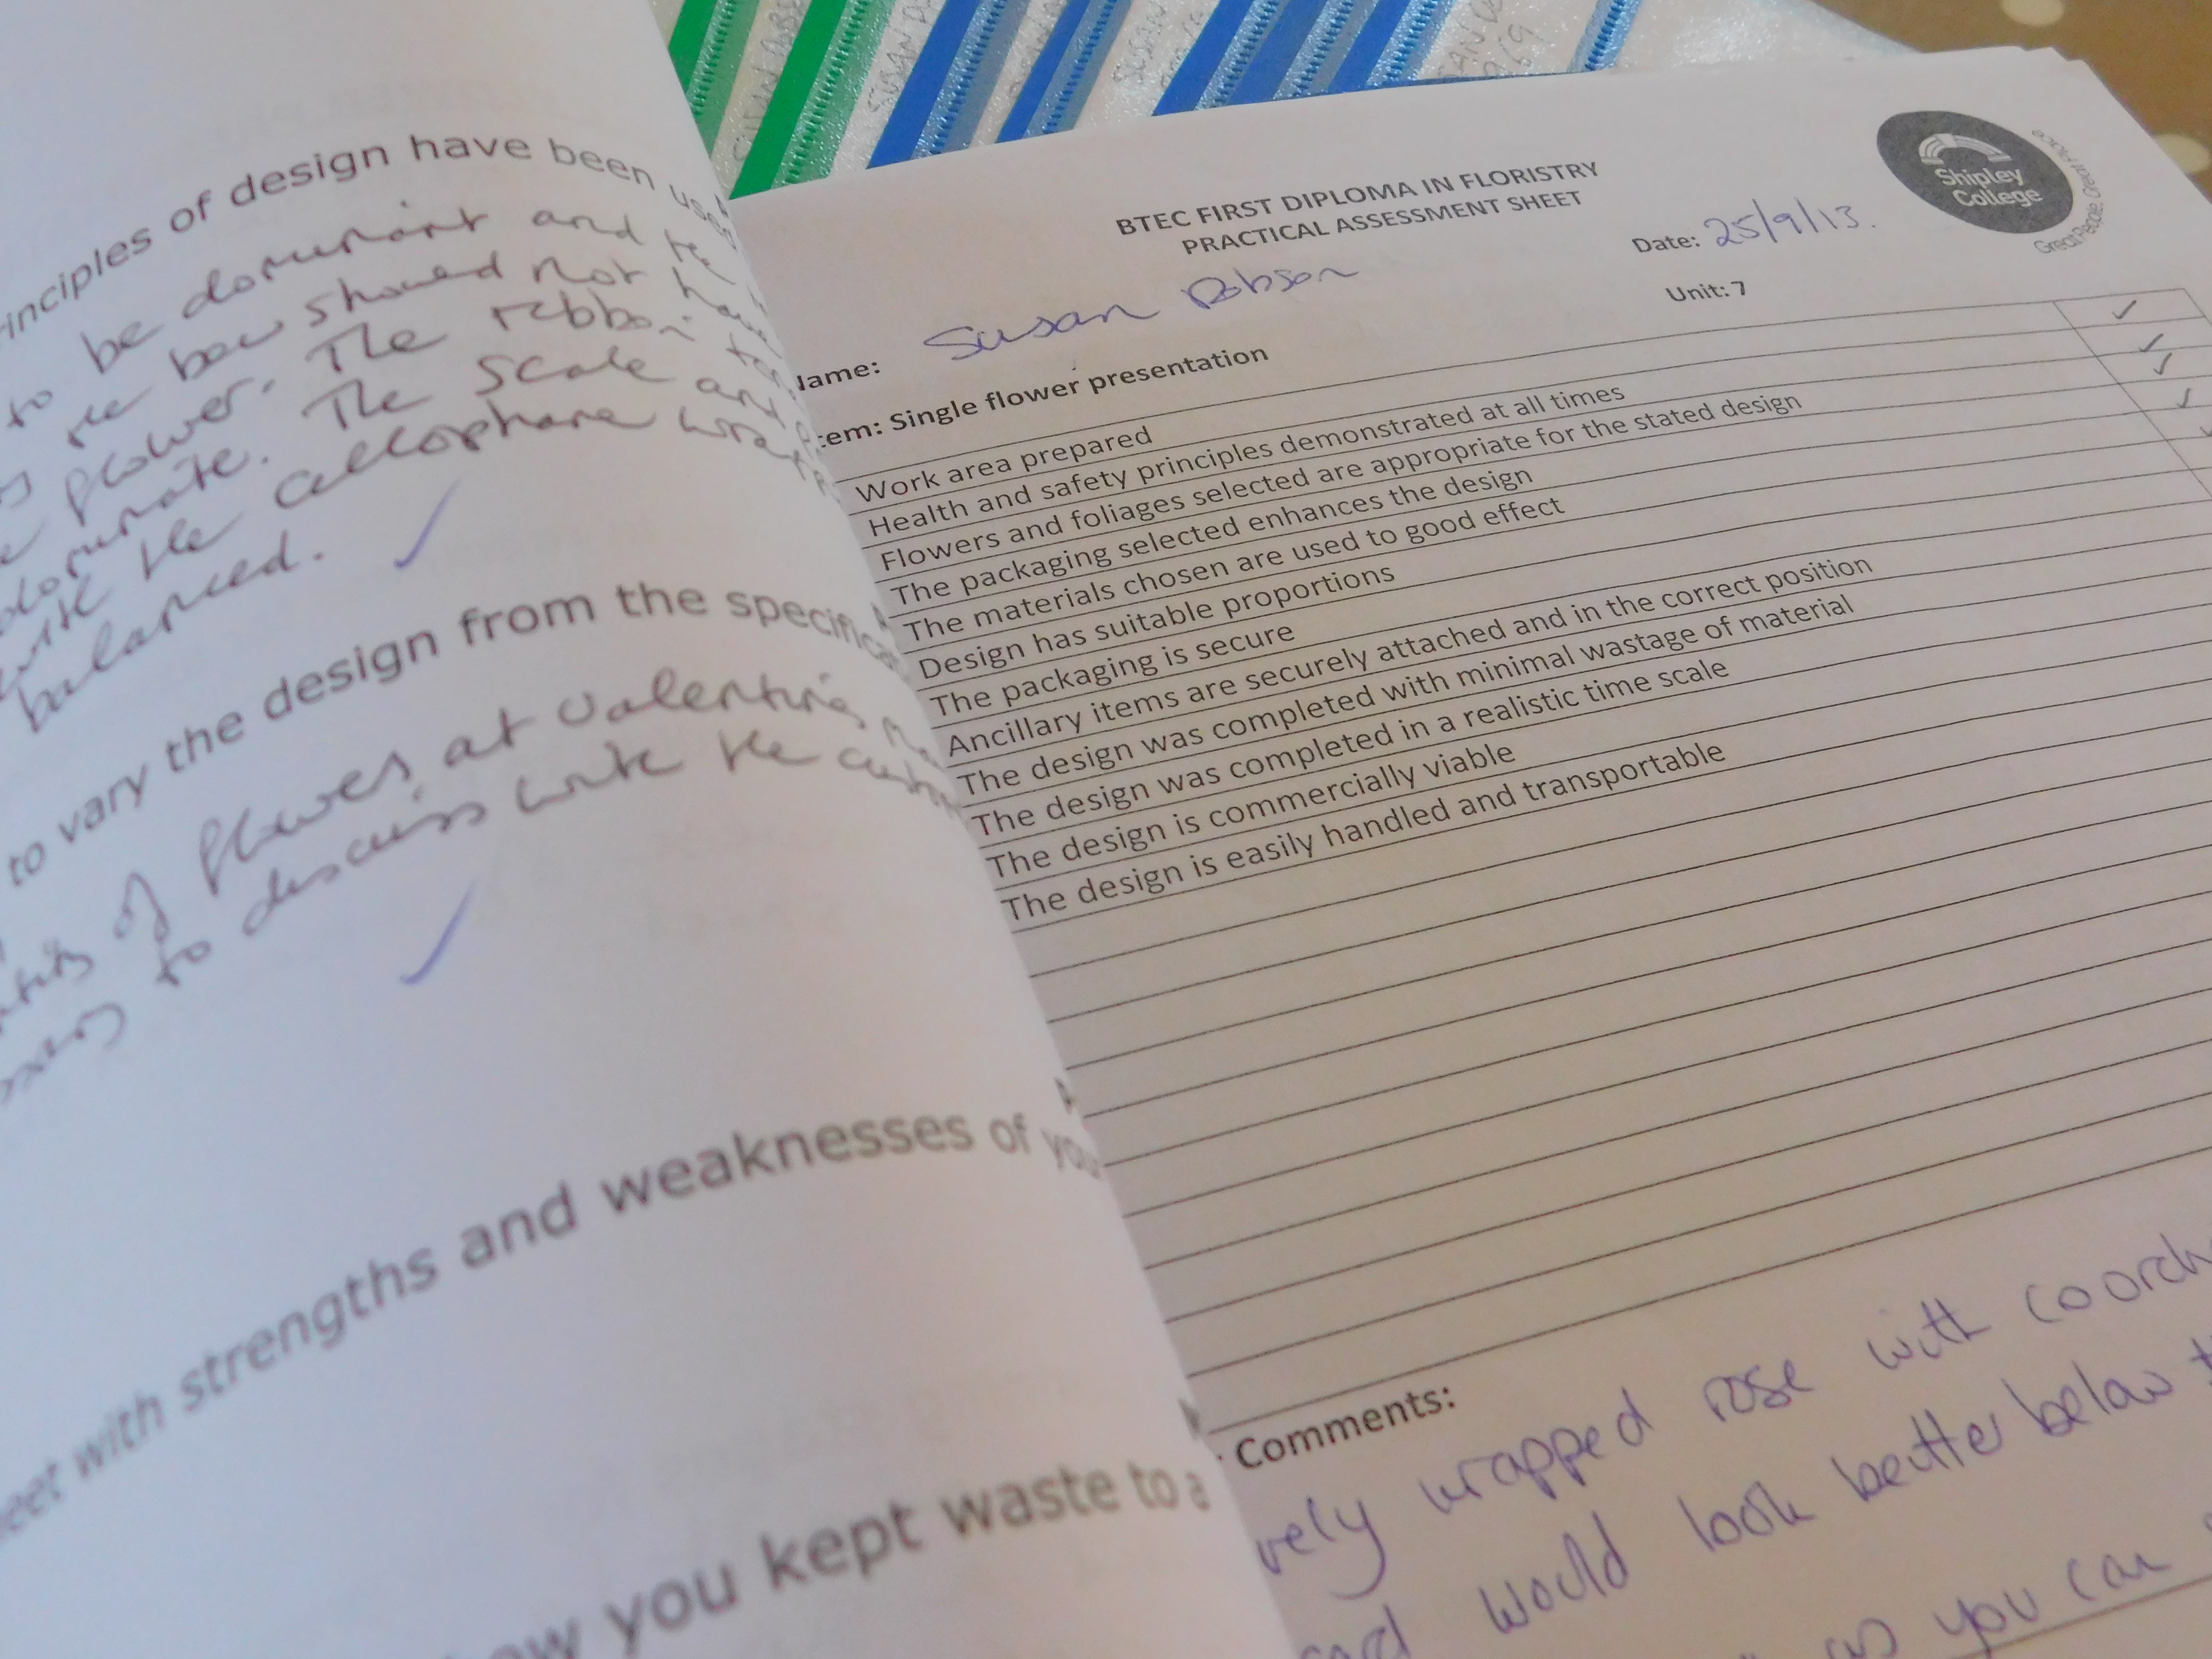 inciples of design have been used
to be dominant and the
the bow should not have
flower. The ribbon
dominate. The scale and
with the cellophane
balanced.
to vary the design from the specific
of flowers at valentines
to discuss with the
eet with strengths and weaknesses of you
ow you kept waste to a
BTEC FIRST DIPLOMA IN FLORISTRY
PRACTICAL ASSESSMENT SHEET
Shipley
College
Great People, Great Place
Date: 25/9/13.
Name: Susan Robson
Unit: 7
tem: Single flower presentation
Work area prepared
Health and safety principles demonstrated at all times
Flowers and foliages selected are appropriate for the stated design
The packaging selected enhances the design
The materials chosen are used to good effect
Design has suitable proportions
The packaging is secure
Ancillary items are securely attached and in the correct position
The design was completed with minimal wastage of material
The design was completed in a realistic time scale
The design is commercially viable
The design is easily handled and transportable
Comments:
vely wrapped rose with coord
would look better below
as you can